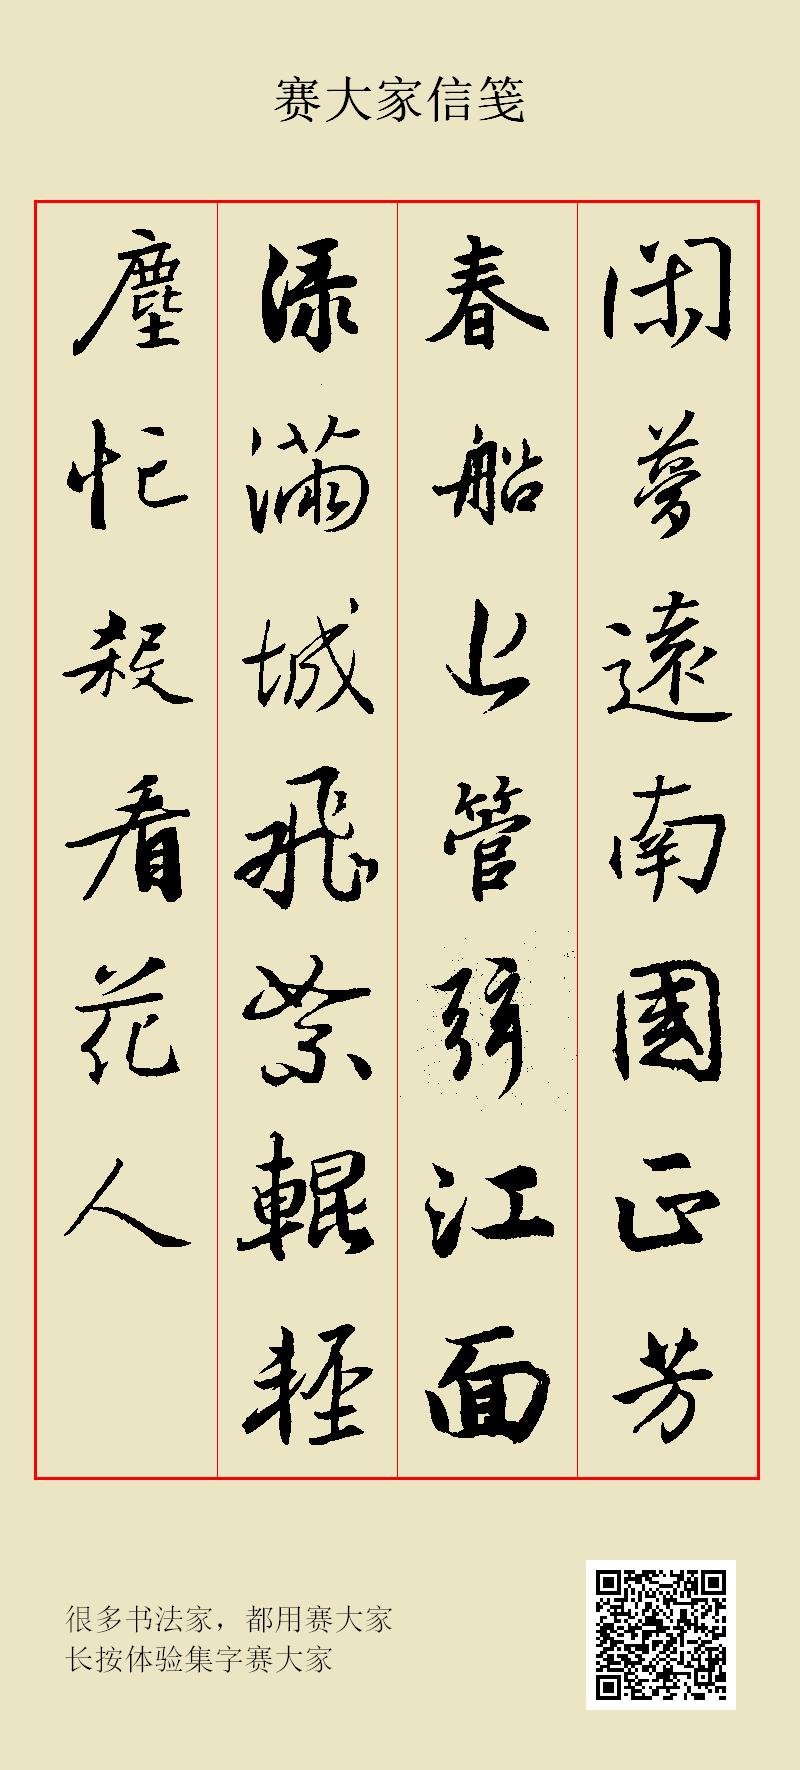 赛大家信笺
闲夢遠南國正芳
春船上管弦江面
渌滿城飛絮輥輕
塵忙殺看花人
很多书法家，都用赛大家
长按体验集字赛大家